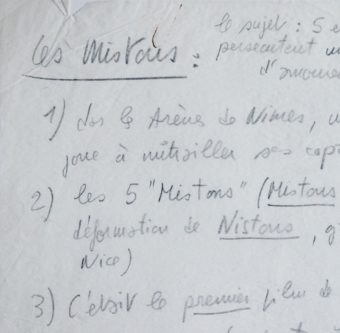 Les Mistons : le sujet : 5 e
persécutent u
d'amoure
1) dans les Arènes de Nîmes, u
joue à mitrailler ses cop
2) les 5 "Mistons" (Mistons
déformation de Nistons, g
Nice)
3) C'était le premier film de